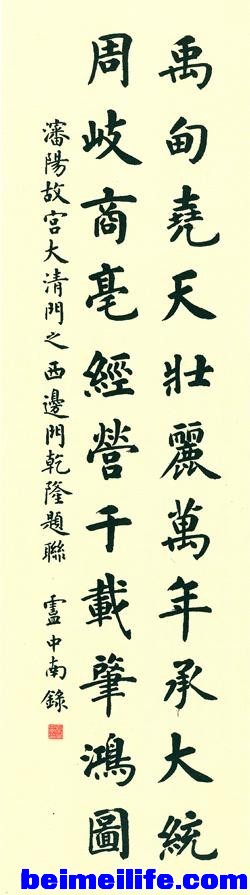 禹甸堯天壯麗萬年承大統
周岐商亳經營千載肇鴻圖
瀋陽故宮大清門之西邊門乾隆題聯 盧中南錄
beimeilife.com